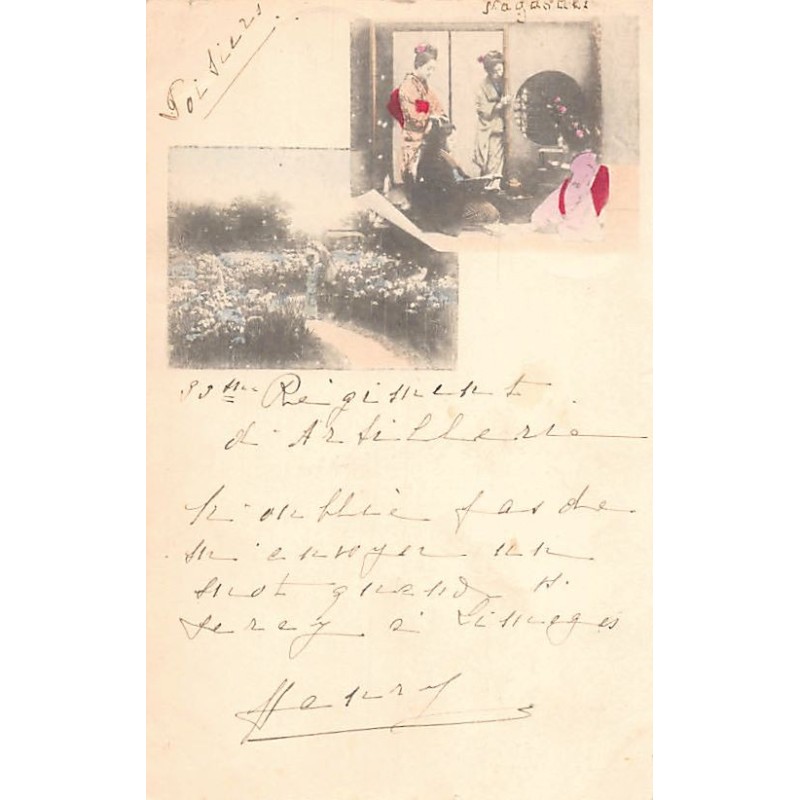 Nagasaki
Poitiers
33me Régiment
d'Artillerie
N'oublie pas de
m'envoyer un
mot quand
serez à Limoges
Henry